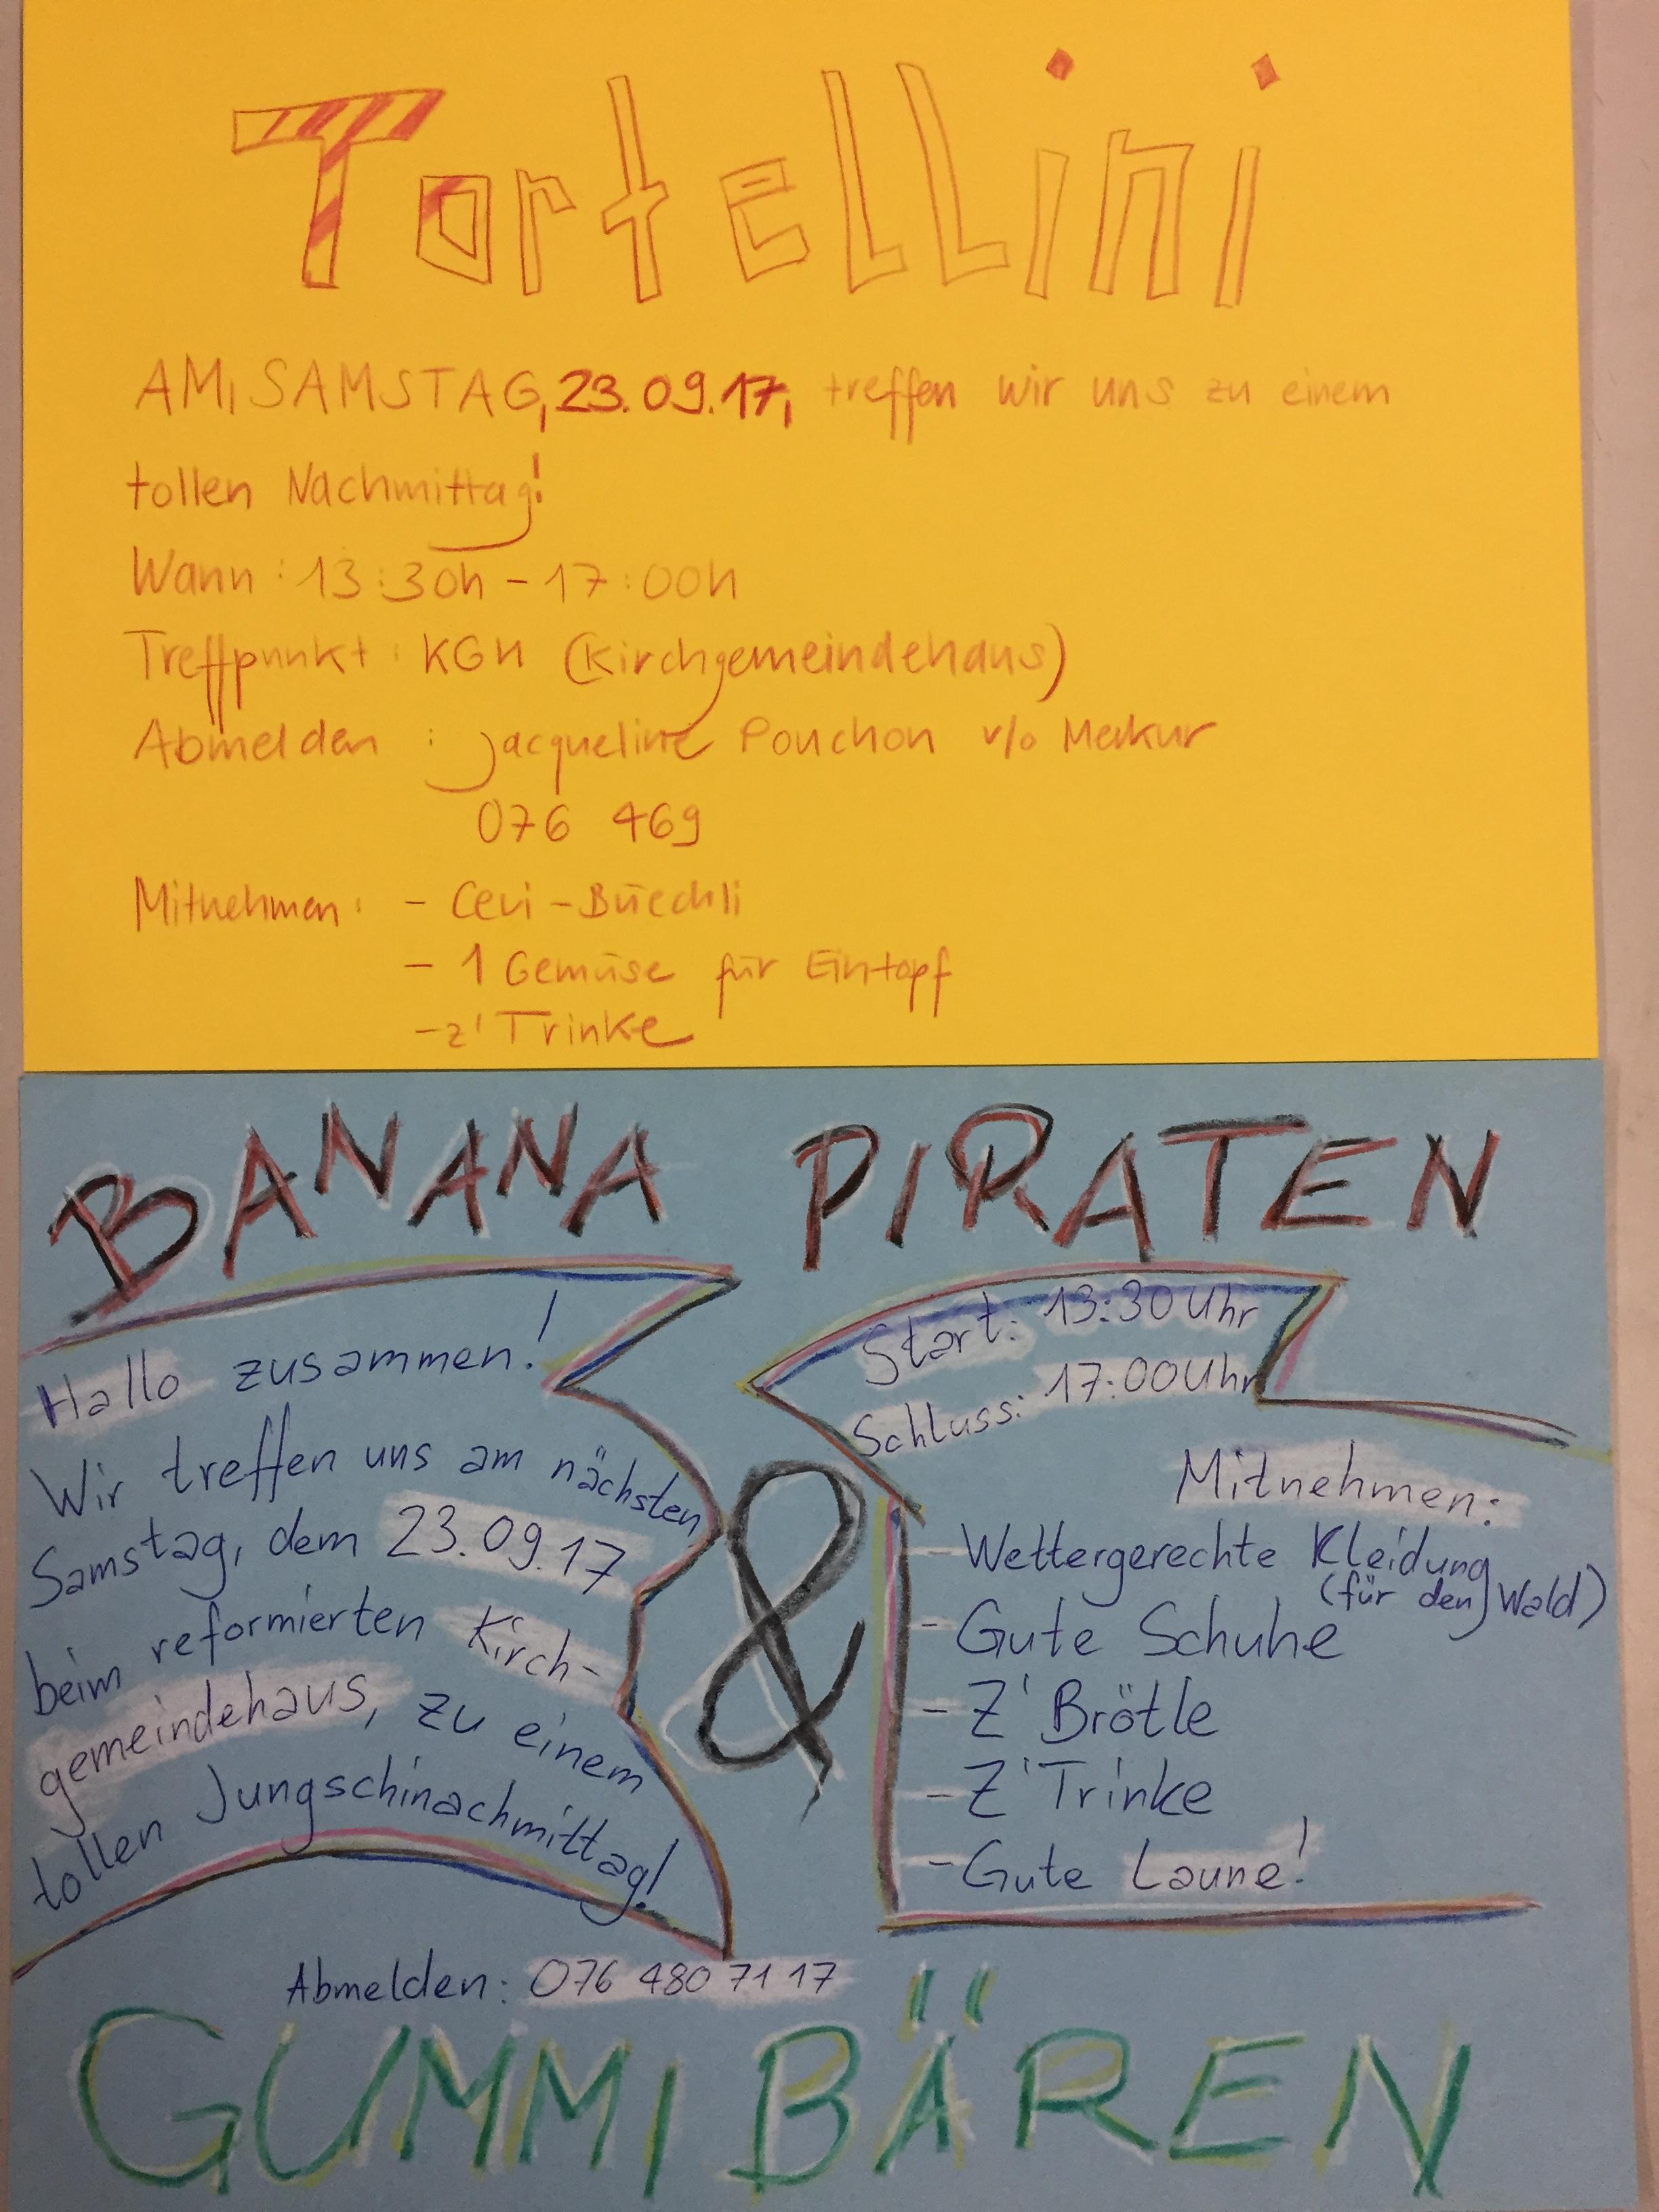 Tortellini
AM, SAMSTAG, 23.09.17, treffen wir uns zu einem
tollen Nachmittag!
Wann: 13:30h - 17:00h
Treffpunkt: KGH (Kirchgemeindehaus)
Abmelden: Jacqueline Pouchon v/o Merkur
076 469
Mitnehmen: - Cevi-Büechli
- 1 Gemüse für Eintopf
- z'Trinke
BANANA PIRATEN
Hallo zusammen!
Wir treffen uns am nächsten
Samstag, dem 23.09.17
beim reformierten Kirch-
gemeindehaus, zu einem
tollen Jungschinachmittag!
&
Start: 13:30 Uhr
Schluss: 17:00 Uhr
Mitnehmen:
- Wettergerechte Kleidung
(für den Wald)
- Gute Schuhe
- Z'Brötle
- Z'Trinke
- Gute Laune!
Abmelden: 076 480 71 17
GUMMIBÄREN